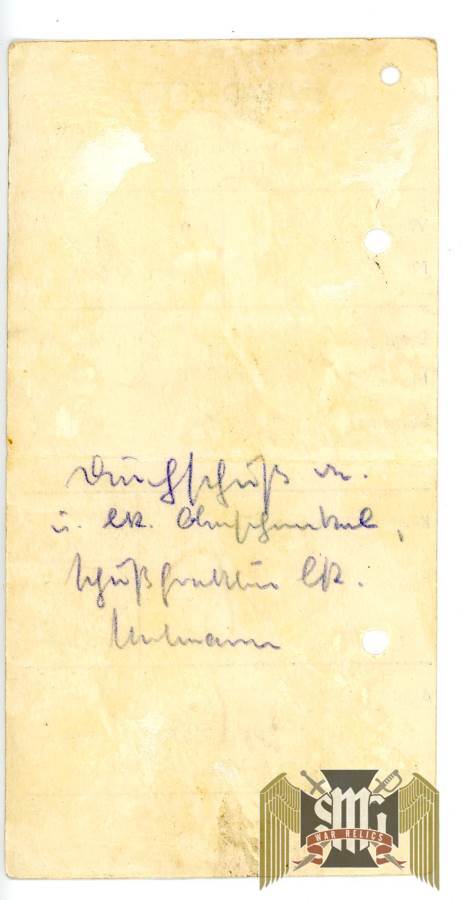 Durchschuß re.
u. lk. Oberschenkel,
Schußfraktur lk.
SMG
WAR RELICS